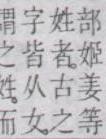 部姬姜等
姓者。古之
字皆从女。
謂之姓。而